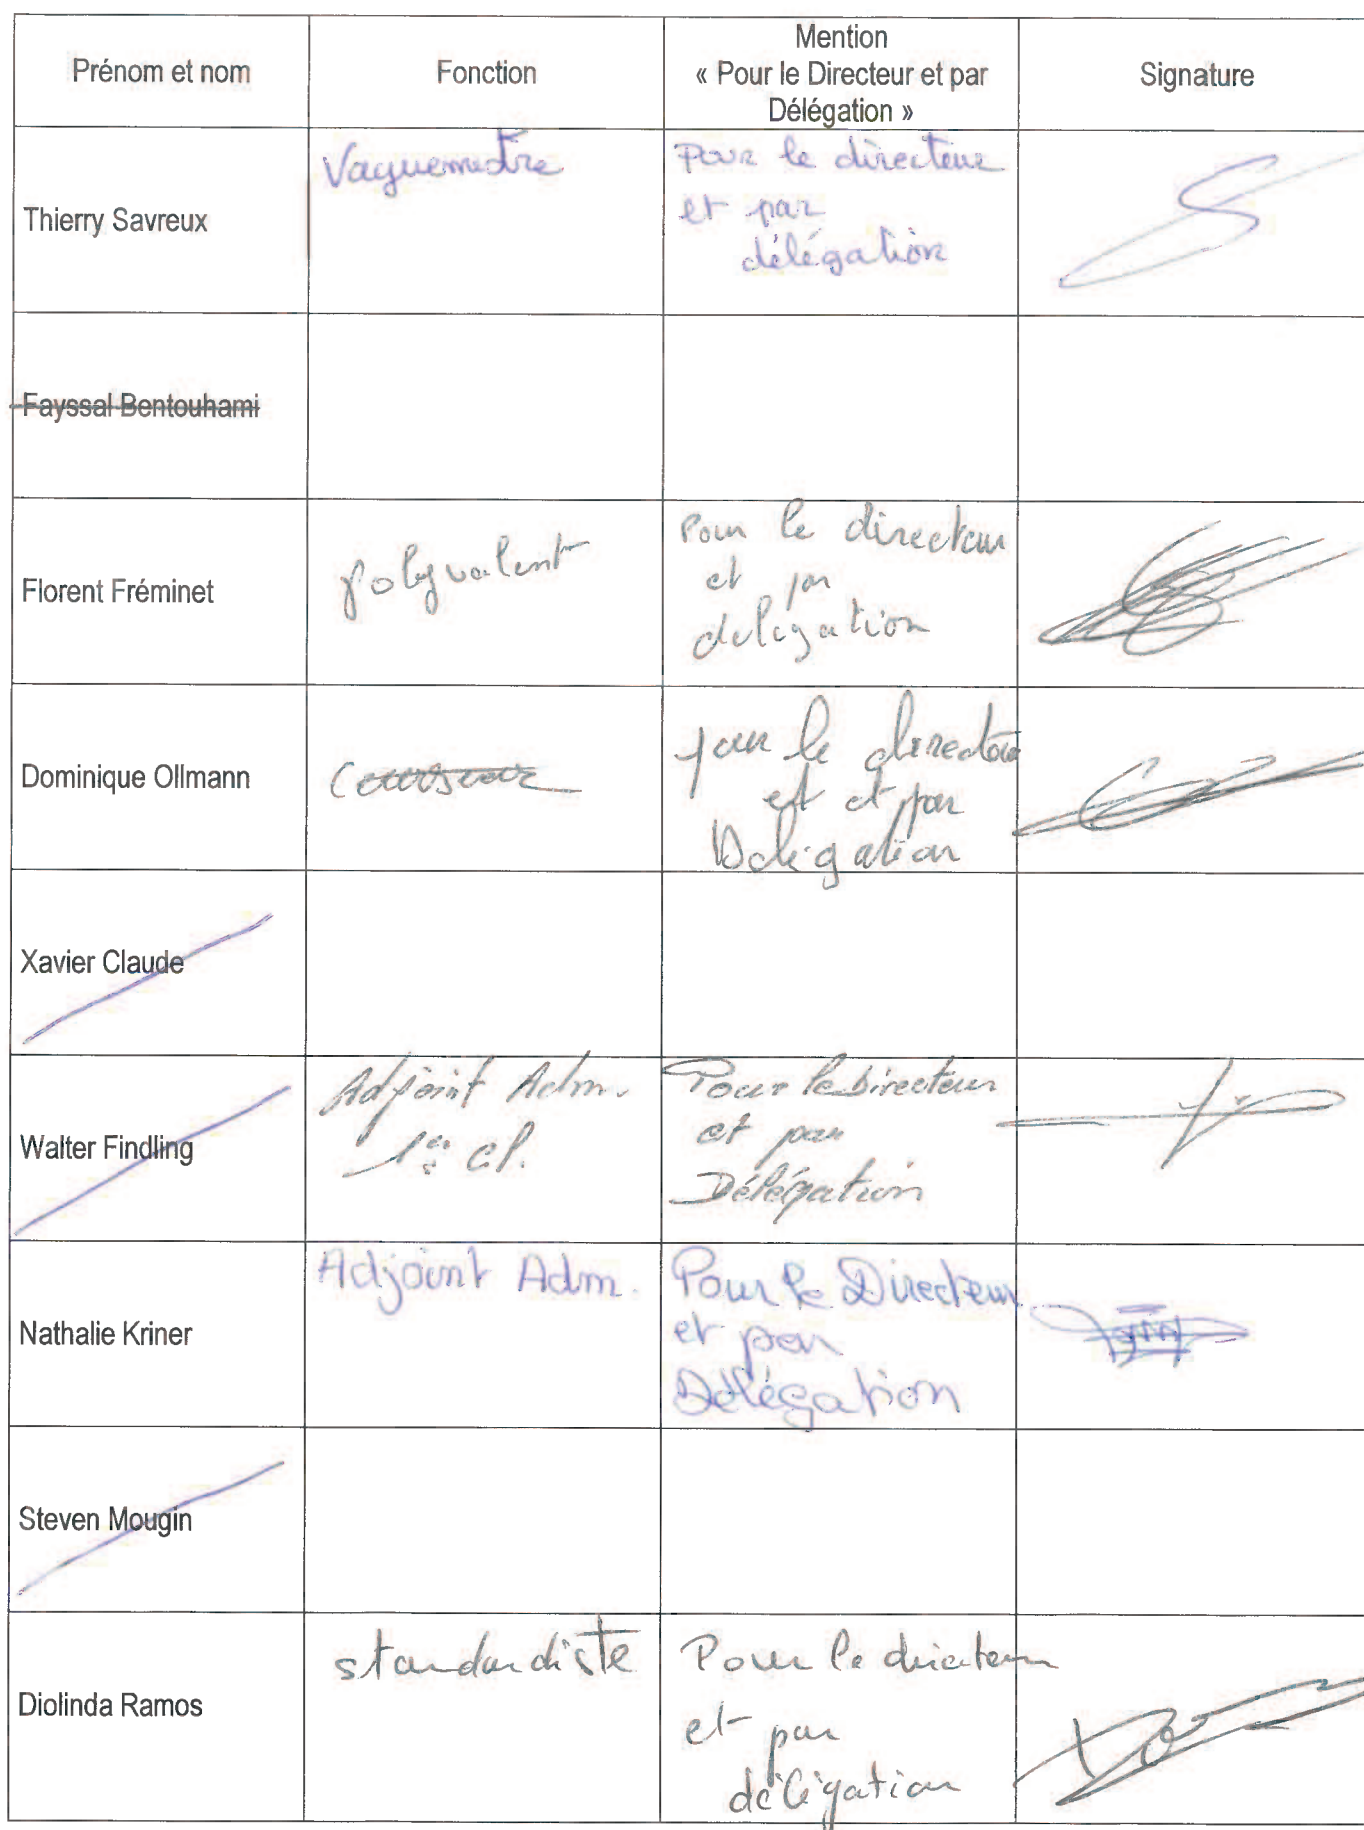 Prénom et nom
Fonction
Mention
« Pour le Directeur et par
Délégation »
Signature
Thierry Savreux
Vaguemestre
Pour le directeur
et par
délégation
Fayssal Bentouhami
Florent Fréminet
polyvalent
Pour le directeur
et par
delegation
Dominique Ollmann
pour le directeur
et et par
Délégation
Xavier Claude
Walter Findling
Adjoint Adm.
Pour le Directeur
et par
Délégation
Nathalie Kriner
Adjoint Adm.
Pour le Directeur
et par
Délégation
Steven Mougin
Diolinda Ramos
standardiste
Pour le directeur
et par
délégation